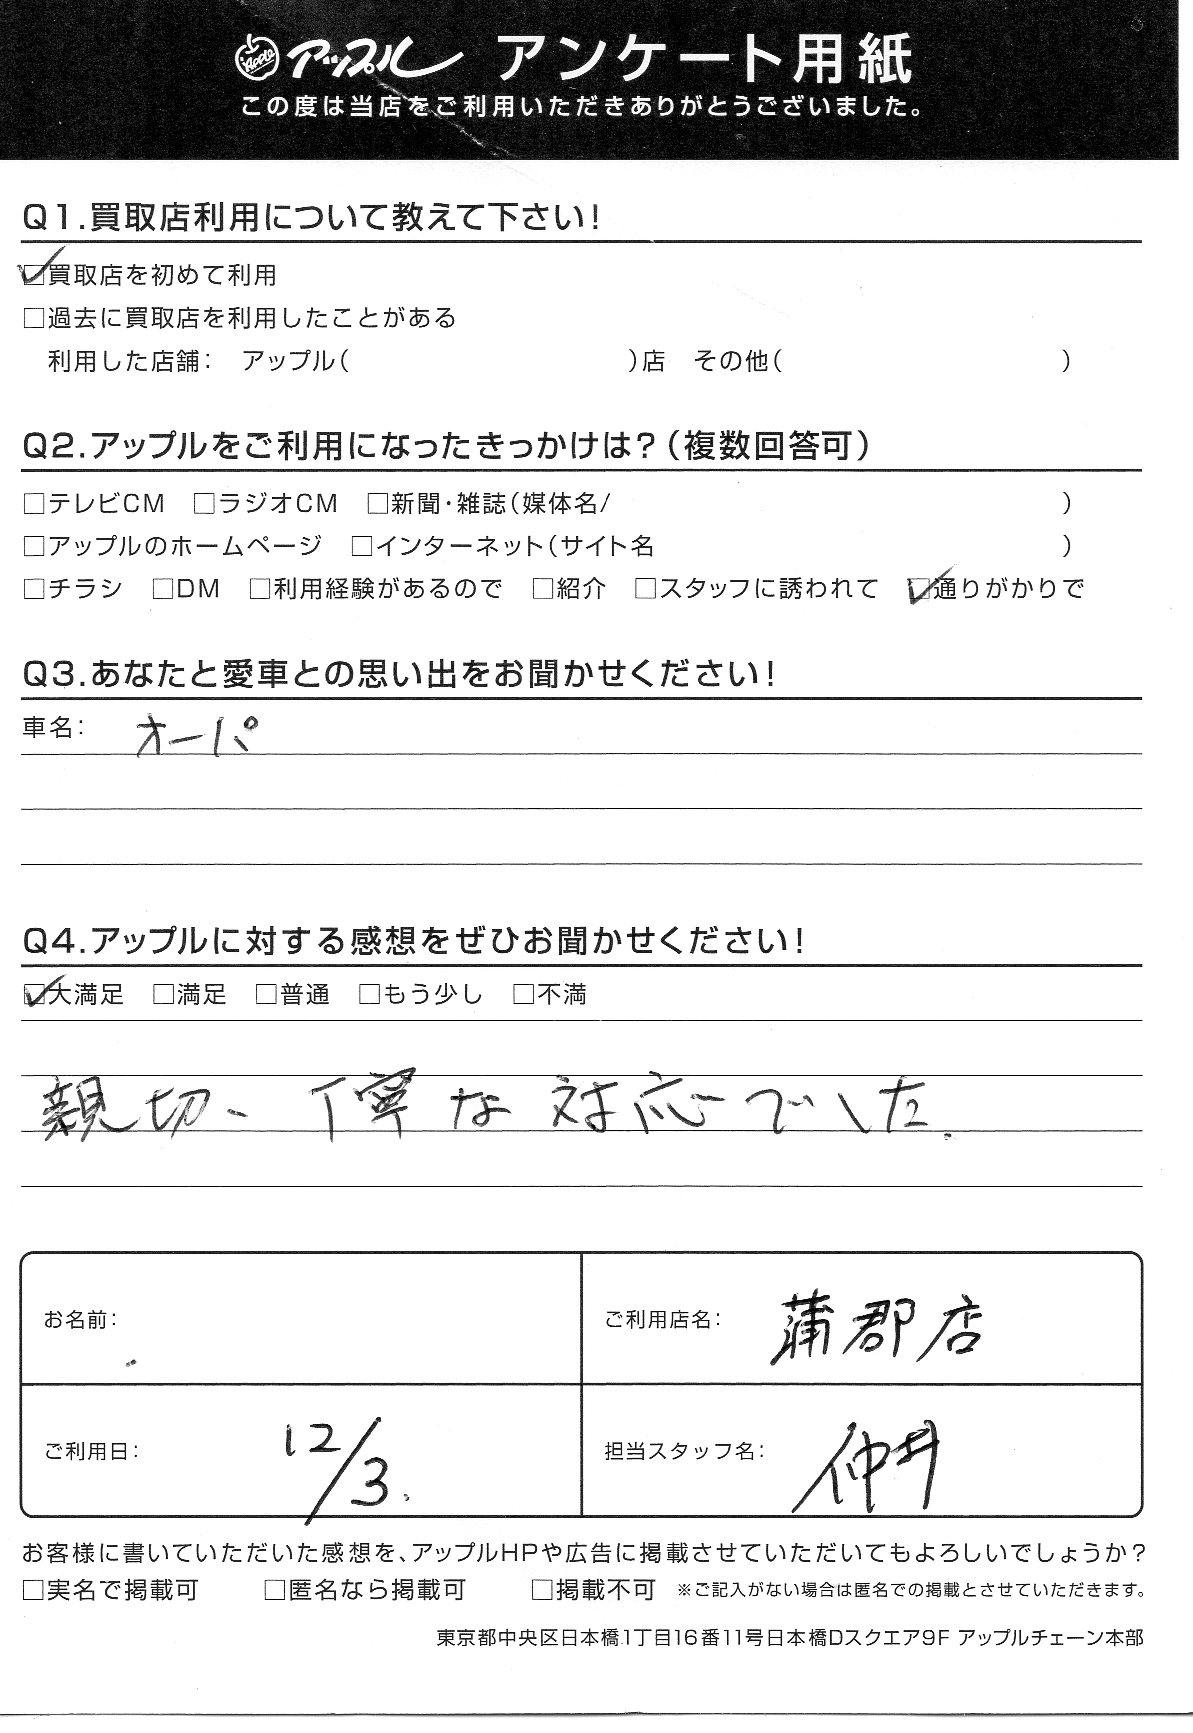 Apple アップル アンケート用紙
この度は当店をご利用いただきありがとうございました。
Q1.買取店利用について教えて下さい!
☑買取店を初めて利用
□過去に買取店を利用したことがある
利用した店舗: アップル( )店 その他( )
Q2.アップルをご利用になったきっかけは?(複数回答可)
□テレビCM □ラジオCM □新聞・雑誌(媒体名/ )
□アップルのホームページ □インターネット(サイト名 )
□チラシ □DM □利用経験があるので □紹介 □スタッフに誘われて ☑通りがかりで
Q3.あなたと愛車との思い出をお聞かせください!
車名: オーパ
Q4.アップルに対する感想をぜひお聞かせください!
☑大満足 □満足 □普通 □もう少し □不満
親切、丁寧な対応でした.
お名前:
ご利用店名: 蒲郡店
ご利用日: 12/3.
担当スタッフ名: 仲井
お客様に書いていただいた感想を、アップルHPや広告に掲載させていただいてもよろしいでしょうか?
□実名で掲載可 □匿名なら掲載可 □掲載不可 ※ご記入がない場合は匿名での掲載とさせていただきます。
東京都中央区日本橋1丁目16番11号日本橋Dスクエア9F アップルチェーン本部